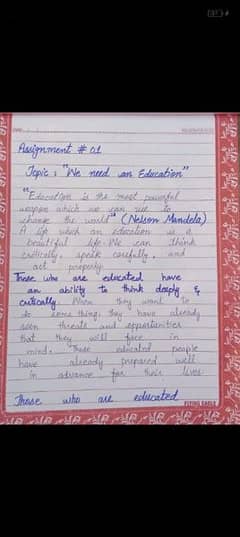 Assignment # 01
Topic : "We need an Education"
"Education is the most powerful
weapon which we can use to
change the world" (Nelson Mandela)
A life which an education is a
beautiful life. We can think
critically, speak carefully, and
act properly.
Those who are educated have
an ability to think deeply &
critically. When they want to
do some thing, they have already
seen threats and opportunities
that they will face in
mind. These educated people
have already prepared well
in advance for their lives
Those who are educated
FLYING EAGLE